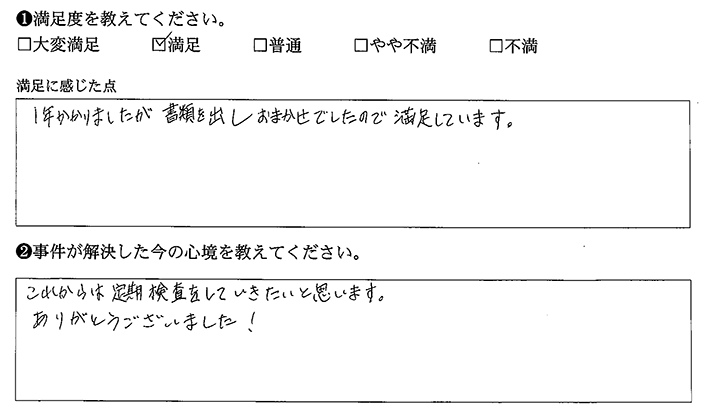 ❶満足度を教えてください。
□大変満足 ☑満足 □普通 □やや不満 □不満
満足に感じた点
1年かかりましたが 書類を出し おまかせでしたので 満足しています。
❷事件が解決した今の心境を教えてください。
これからは 定期検査をして いきたいと思います。
ありがとうございました!